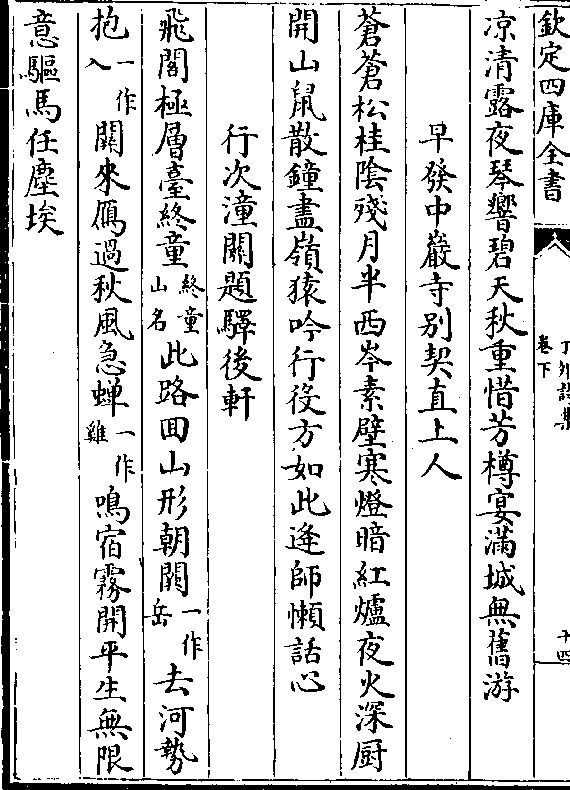 欽定四庫全書
丁卯詩集
卷下
十四
凉清露夜琴響碧天秋重惜芳樽宴滿城無舊游
早發中巖寺别契直上人
蒼蒼松桂陰殘月半西岑素壁寒燈暗紅爐夜火深厨
開山鼠散鐘盡嶺猿吟行役方如此逢師懶話心
行次潼關題驛後軒
飛閣極層臺終童終童山名此路囬山形朝闕一作岳去河勢
抱一作入關來鴈過秋風急蟬一作雞鳴宿霧開平生無限
意驅馬任塵埃